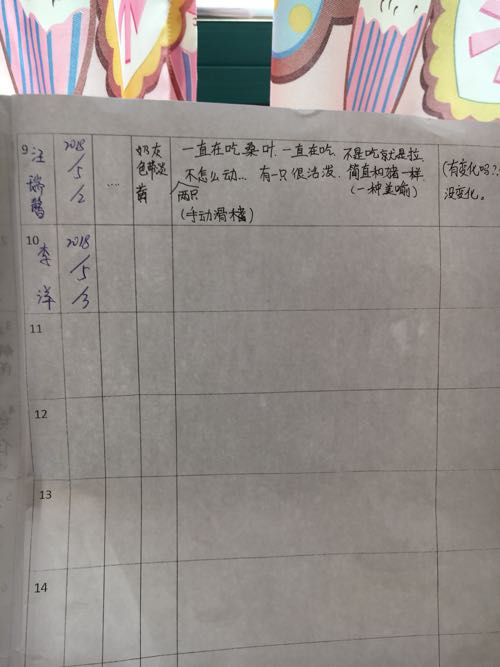 9 汪瑞馨
2018/5/2
....
奶灰色带淡黄
一直在吃桑叶.一直在吃.不是吃就是拉.
不怎么动... 有一只很活泼.简直和猪一样.
两只
(一种差喻)
(手动滑稽)
(有变化吗?
没变化。
10 李洋
2018/5/3
11
12
13
14